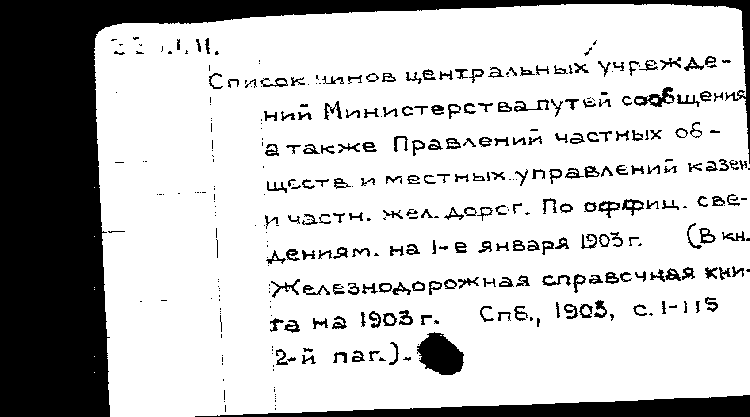 Список чинов центральных учрежде-
ний Министерства путей сообщения
а также Правлений частных об-
ществ и местных управлений казен.
и частн. жел. дорог. По оффиц. све-
дениям. на 1-е января 1903 г. (В кн.
Железнодорожная справочная кни-
га на 1903 г. Спб., 1903, с. 1-115
2-й паг.).